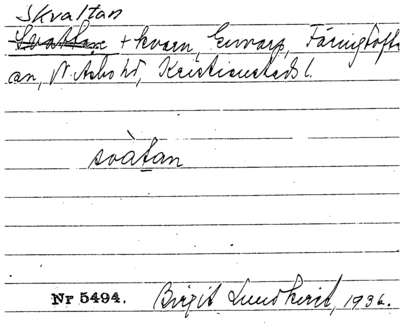 Skvaltan
Svaltan + kvarn, Envarp, Färingtofta
sn, N. Asbo hd, Kristianstads l.
svàtan
Nr 5494. Birgit Lundkvist, 1936.